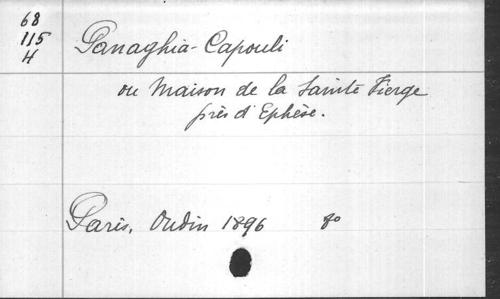 68
115
H
Panaghia-Capouli
ou Maison de la Sainte Vierge
près d'Ephèse.
Paris, Oudin 1896 8o